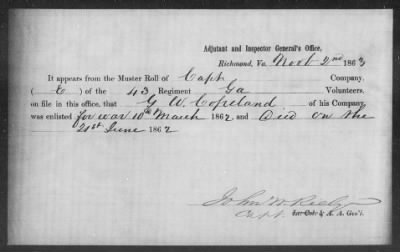 Adjutant and Inspector General's Office,
Richmond, Va. Novb 2nd 1863
It appears from the Muster Roll of Capt Company,
( E ) of the 43 Regiment Ga Volunteers.
on file in this office, that G. W. Copeland of his Company
was enlisted for war 10th March 1862 and Died on the
21st June 1862
John W.
Capt & A. A. Gen'l.